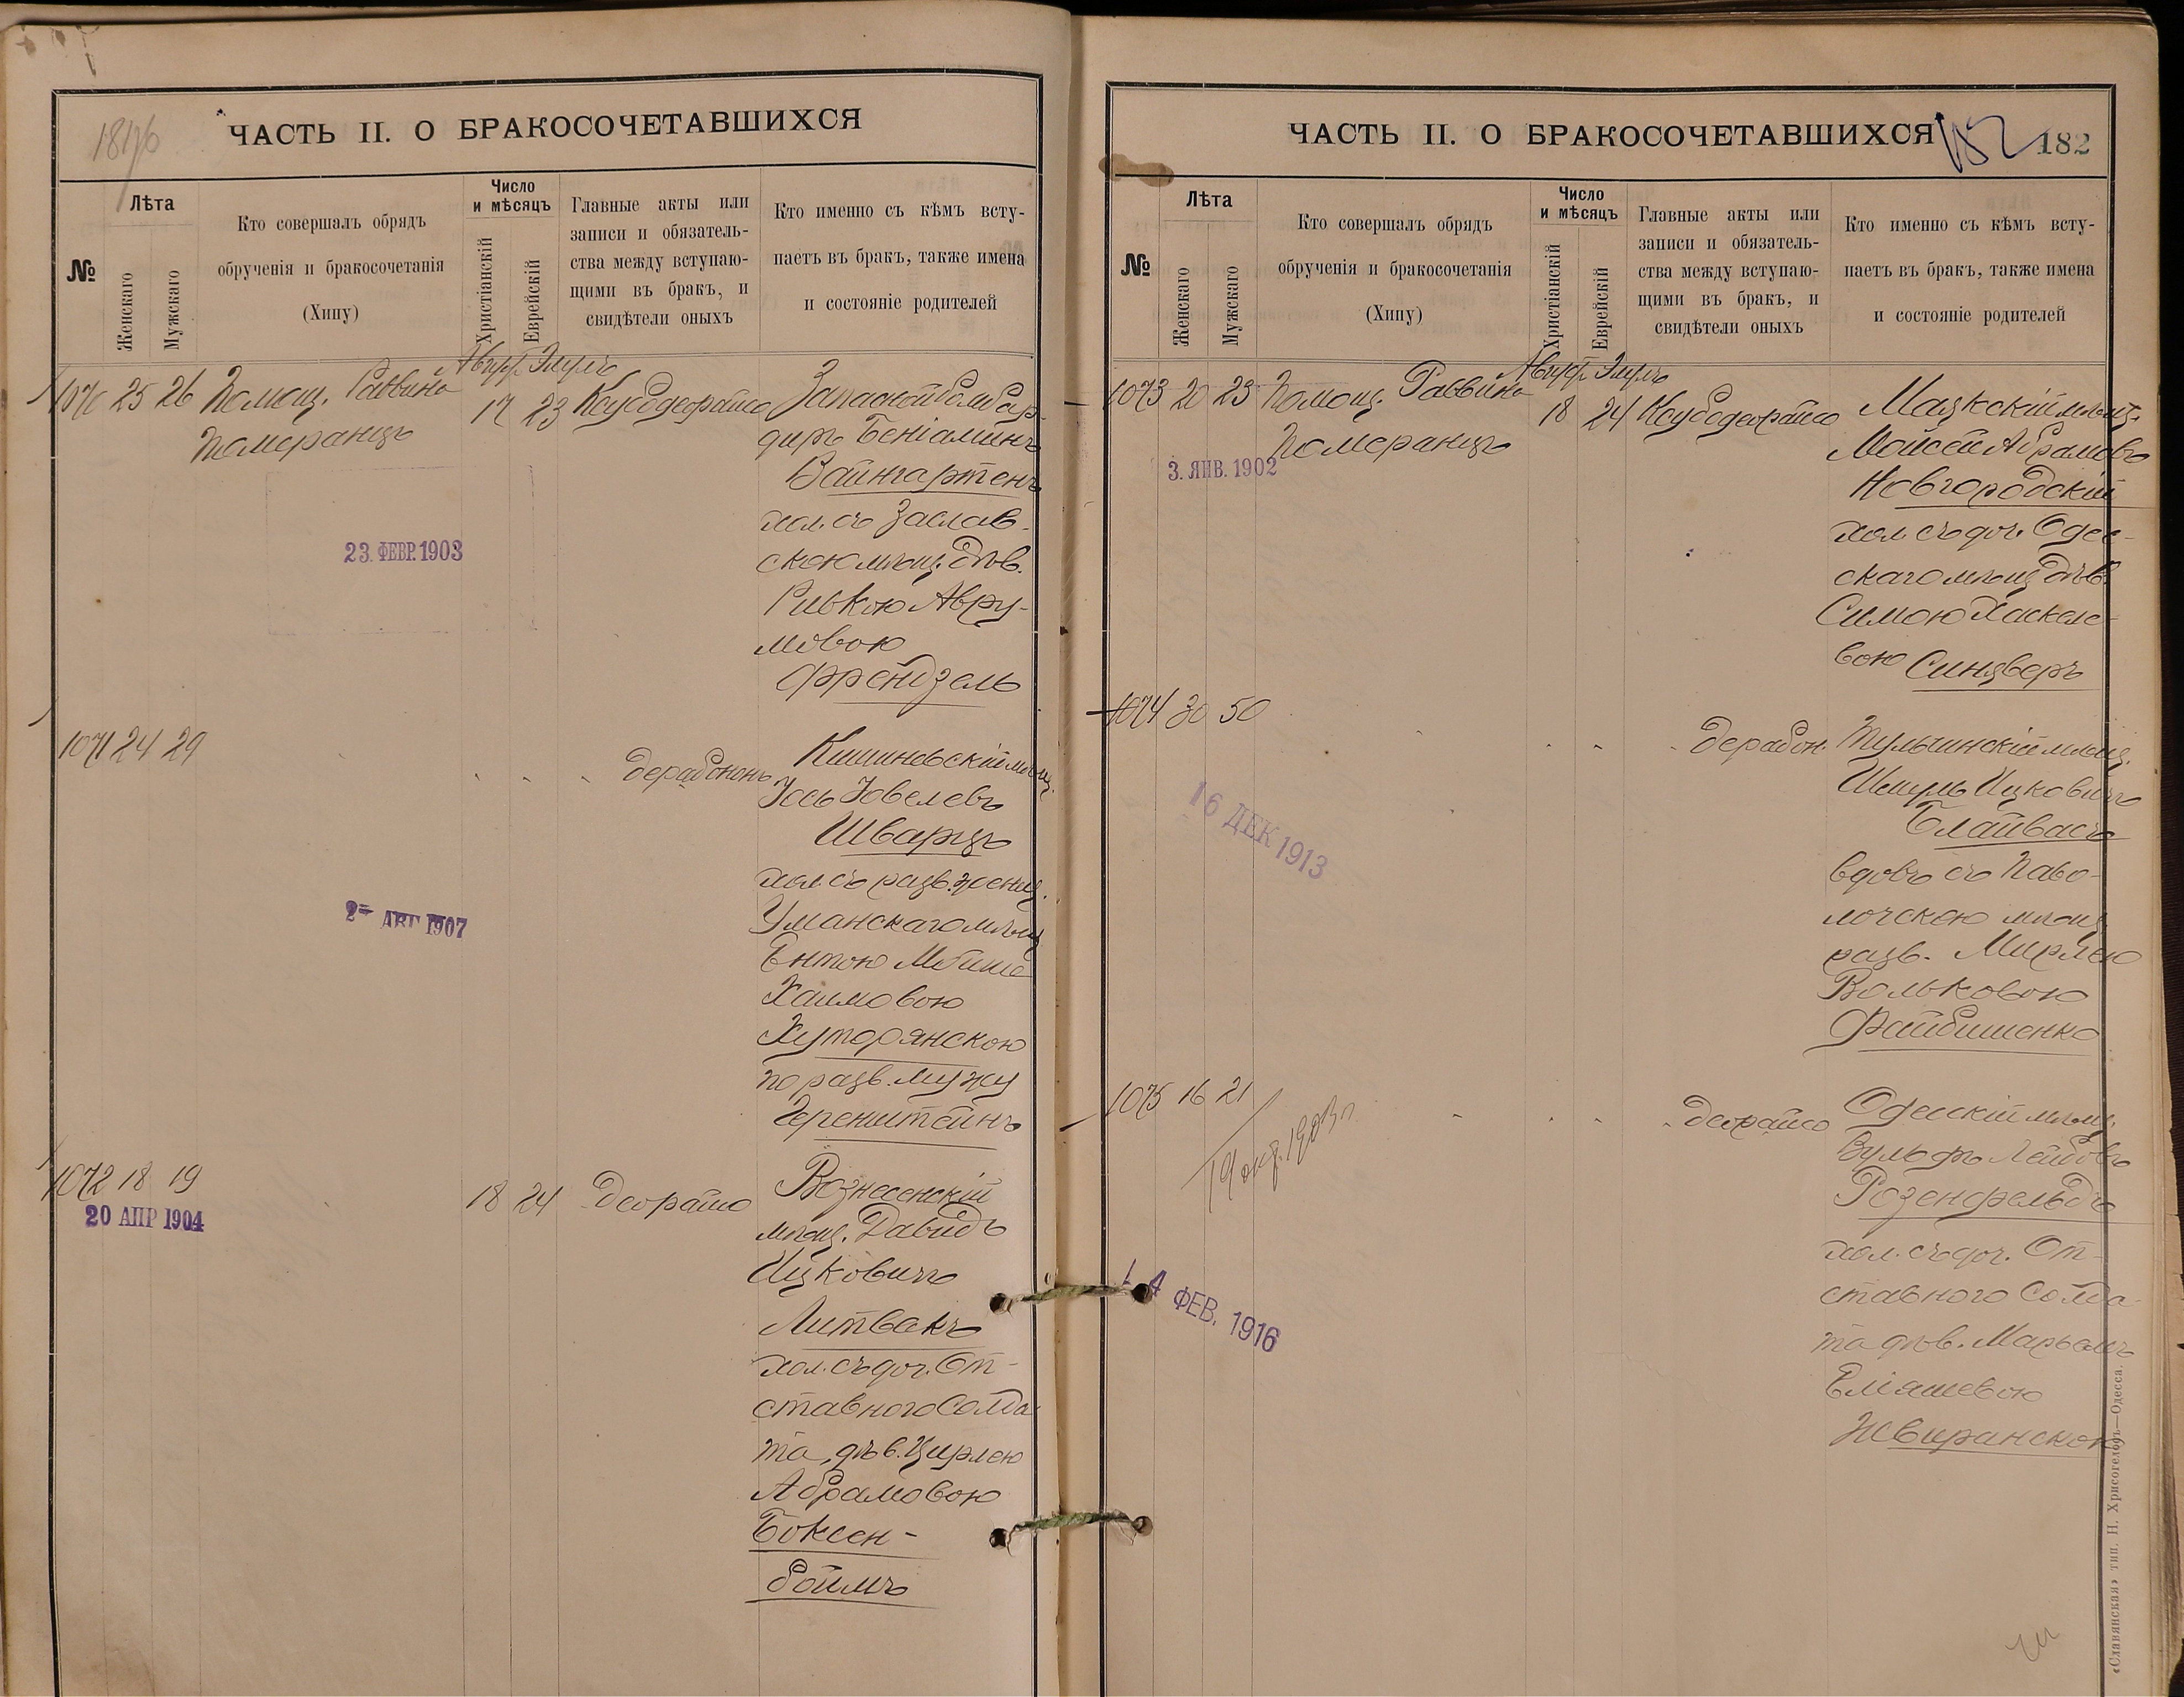 ЧАСТЬ II. О БРАКОСОЧЕТАВШИХСЯ
№
Лѣта
Женскаго
Мужскаго
Кто совершалъ обрядъ
обрученія и бракосочетанія
(Хипу)
Число
и мѣсяцъ
Христіанскій
Еврейскій
Главные акты или
записи и обязатель-
ства между вступаю-
щими въ бракъ, и
свидѣтели оныхъ
Кто именно съ кѣмъ всту-
паетъ въ бракъ, также имена
и состояніе родителей
1070 25 26 Помощ. Раввина
Померанцъ
Авг. Элулъ
17 23
Запасной бомбар-
диръ Беніаминъ
Вайнгартенъ
хол. съ Заслав-
скою мѣщ. дѣв.
Ривкою Авру-
мовою
Френдзель
23. ФЕВР. 1903
1071 24 29
Кишиновскій мѣщ.
Іось Іовелевъ
Шварцъ
хол. съ разв. женщ.
Уманскаго мѣщ.
Ентою
Хаимовою
Хуторянскою
по разв. мужу
Геренштейнъ
2- АВГ 1907
1072 18 19
20 АПР 1904
18 24 Деорайсо
Вознесенскій
мѣщ. Давидъ
Ицковичъ
Литвакъ
хол. съ доч. От-
ставного Солда-
та, дѣв. Цирлею
Абрамовою
Боксен-
боймъ
ЧАСТЬ II. О БРАКОСОЧЕТАВШИХСЯ
182
182
№
Лѣта
Женскаго
Мужскаго
Кто совершалъ обрядъ
обрученія и бракосочетанія
(Хипу)
Число
и мѣсяцъ
Христіанскій
Еврейскій
Главные акты или
записи и обязатель-
ства между вступаю-
щими въ бракъ, и
свидѣтели оныхъ
Кто именно съ кѣмъ всту-
паетъ въ бракъ, также имена
и состояніе родителей
1073 20 23 Помощ. Раввина
Померанцъ
3. ЯНВ. 1902
Авг. Элулъ
18 24
Маякскій мѣщ.
Мойсей Абрамовъ
Новгородскій
хол. съ доч. Одес-
скаго мѣщ. дѣв.
Симою Хаскеле-
вою Синдверъ
1074 30 50
Тульчинскій мѣщ.
Шмуль Ицковичъ
Блайвасъ
вдовъ съ Паво-
лочскою мѣщ.
разв. Мирлею
Вольковою
Файбишенко
16 ДЕК 1913
1075 16 21
19 окт. 1903 г.
Деорайсо
Одесскій мѣщ.
Вульфъ Лейбовъ
Розенфельдъ
хол. съ доч. От-
ставного Солда-
та дѣв. Марьемъ
Еліяшевою
Жвиранскою
4 ФЕВ. 1916
«Славянская» тип. Н. Хрисогелосъ.—Одесса.